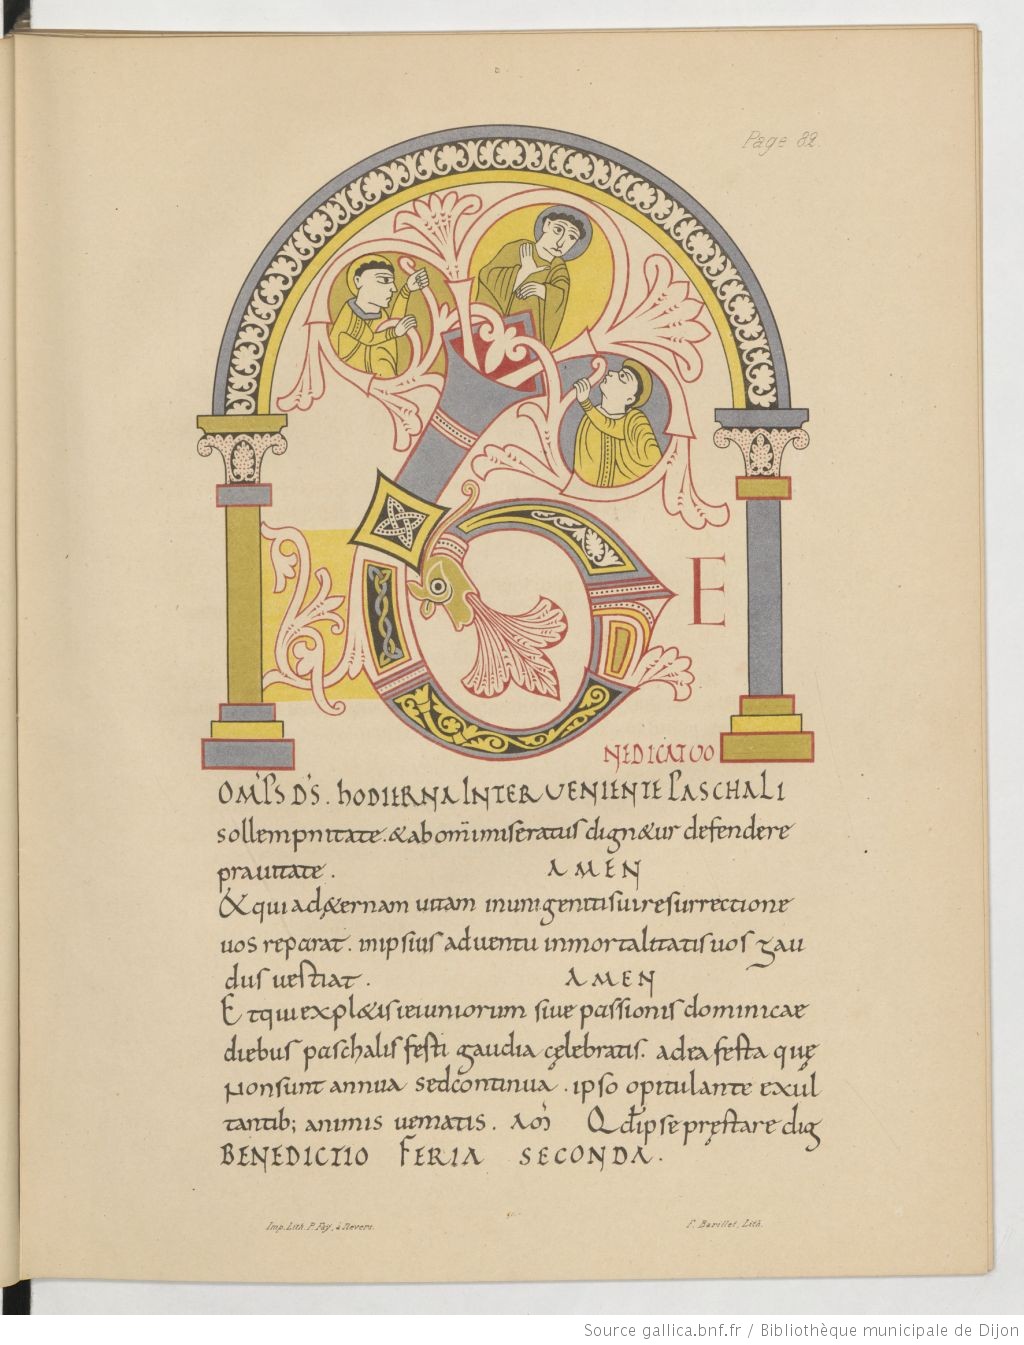 Page 82.
BE
NEDICAT VO
OM̅PS D̅S. hODIERNA INTERVENIENTE PASCHALI
sollempnitate. & ab om̅i miseratus dign&ur defendere
prauitate. AMEN
& qui ad &ernam uitam in unigeniti sui resurrectione
uos reparat. in ipsius aduentu inmortalitatis uos gau
diis uestiat. AMEN
Et qui expl&is ieiuniorum siue passionis dominicae
diebus paschalis festi gaudia cęlebratis. ad ea festa quę
Non sunt annua sed continua. ipso opitulante exul
tantib; animis ueniatis. Am̅ Qd̅ ipse pręstare dig
BENEDICTIO FERIA SECONDA.
Imp. Lith. P. Fay, à Nevers. F. Barillet, Lith.
Source gallica.bnf.fr / Bibliothèque municipale de Dijon